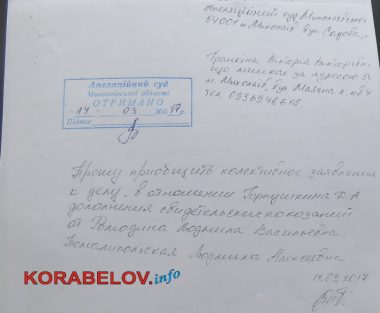 Апеляційний суд Миколаївської
54001 м. Миколаїв вул. Садова
Вікторія
що мешкає за адресою
м. Миколаїв, вул.
тел.
Апеляційний суд
Миколаївської області
ОТРИМАНО
14 03 2017 р.
Підпис
Прошу приобщить колективное заявления
к делу, в отношении Д.А
дополнения свидетельских показаний
от Ремодина Людмила Васильевна,
Людмила Алексеевна
14.03.2017
KORABELOV.info